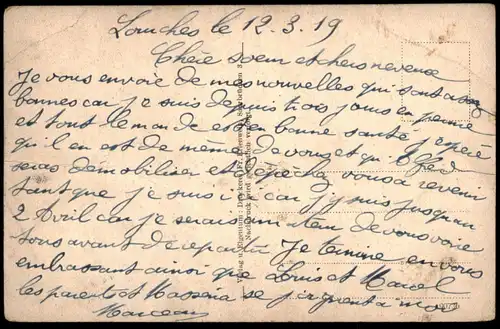 Lourches le 12.3.19
Chère soeur et chers neveux
Je vous envoie de mes nouvelles qui sont assez
bonnes car je suis depuis trois jours en permie
et tout le monde est en bonne santé j'espère
qu'il en est de même de vous et qu'Alfred
seras démobiliser et dépechez vous a revenir
tant que je suis ici car j'y suis jusqu'au
2 Avril car je serais content de vous voir
tous avant de repartir Je termine en vous
embrassant ainsi que Louis et Marcel
les parents et se joignent a moi
Marceau